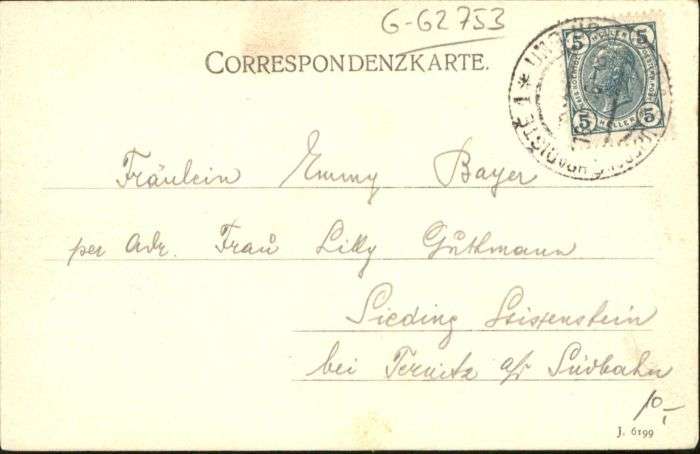 G-G2 753
CORRESPONDENZKARTE.
5 HELLER 5
5 HELLER 5
Fräulein Emmy Bayer
per Adr. Frau Lilly Guthmann
Sieding
bei Ternitz a/ Südbahn
10,-
J. 6199